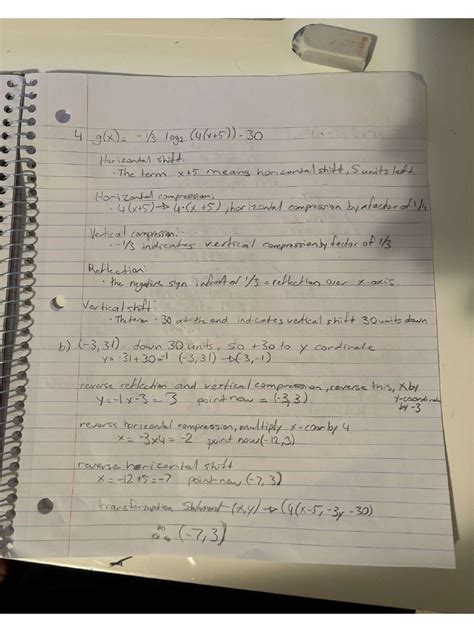 4 g(x) = -1/3 log₂ (4(x+5)) - 30
Horizontal shift
· The term x+5 means horizontal shift, 5 units left
Horizontal compression:
· 4(x+5) → 4·(x+5), horizontal compression by a factor of 1/4
Vertical compression:
· -1/3 indicates vertical compression by factor of 1/3
Reflection:
· the negative sign infront of 1/3 = reflection over x-axis
Vertical shift:
· The term -30 at the end indicates vertical shift 30 units down
b) (-3,31) down 30 units, so +30 to y cordinate
y = -31+30=-1 (-3,31) → (-3,-1)
reverse reflection and vertical compression, reverse this, x by y-coordinate by -3
y=-1 x-3 = 3 point now = (-3,3)
reverse horizontal compression, multiply x-coor by 4
x = -3x4 = -2 point now (-12,3)
reverse horizontal shift
x = -12+5 = -7 point now (-7,3)
transformation Statement (x,y) → (4(x-5, -3y -30)
(-7,3)